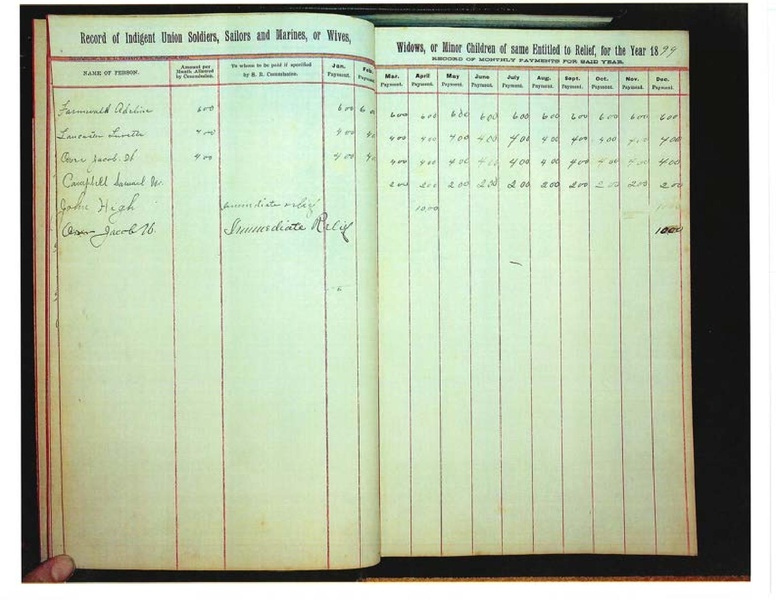 Record of Indigent Union Soldiers, Sailors and Marines, or Wives, Widows, or Minor Children of same Entitled to Relief, for the Year 1899
RECORD OF MONTHLY PAYMENTS FOR SAID YEAR.
NAME OF PERSON. Amount per Month Allowed by Commission. To whom to be paid if specified by S. R. Commission. Jan. Payment. Feb. Mar. Payment. April Payment. May Payment. June Payment. July Payment. Aug. Payment. Sept. Payment. Oct. Payment. Nov. Payment. Dec. Payment.
Adeline 600 600 600 600 600 600 600 600 600 600 600 600
Lancaster 400 400 400 400 400 400 400 400 400 400 400 400
Jacob H 400 400 400 400 400 400 400 400 400 400 400 400
Campbell Samuel W. 200 200 200 200 200 200 200 200 200 200
John High immediate relief 1000
Jacob H. Immediate Relief 1000